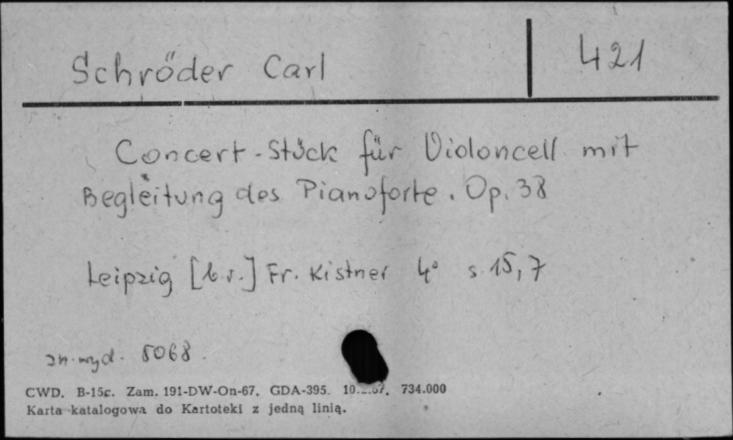 Schröder Carl
421
Concert-Stück für Violoncell mit
Begleitung des Pianoforte. Op. 38
Leipzig [b.r.] Fr. Kistner 4° s. 15, 7
zn. wyd. 5068.
CWD. B-15c. Zam. 191-DW-On-67. GDA-395. 734.000
Karta katalogowa do Kartoteki z jedną linią.